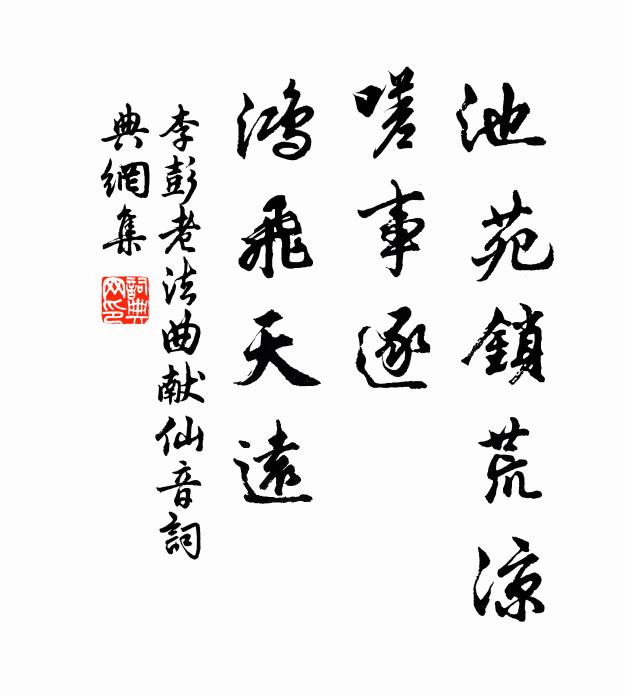 池苑鎖荒涼
嗟事逐
鴻飛天遠
李彭老法曲献仙音詞
典網集
詞典网印